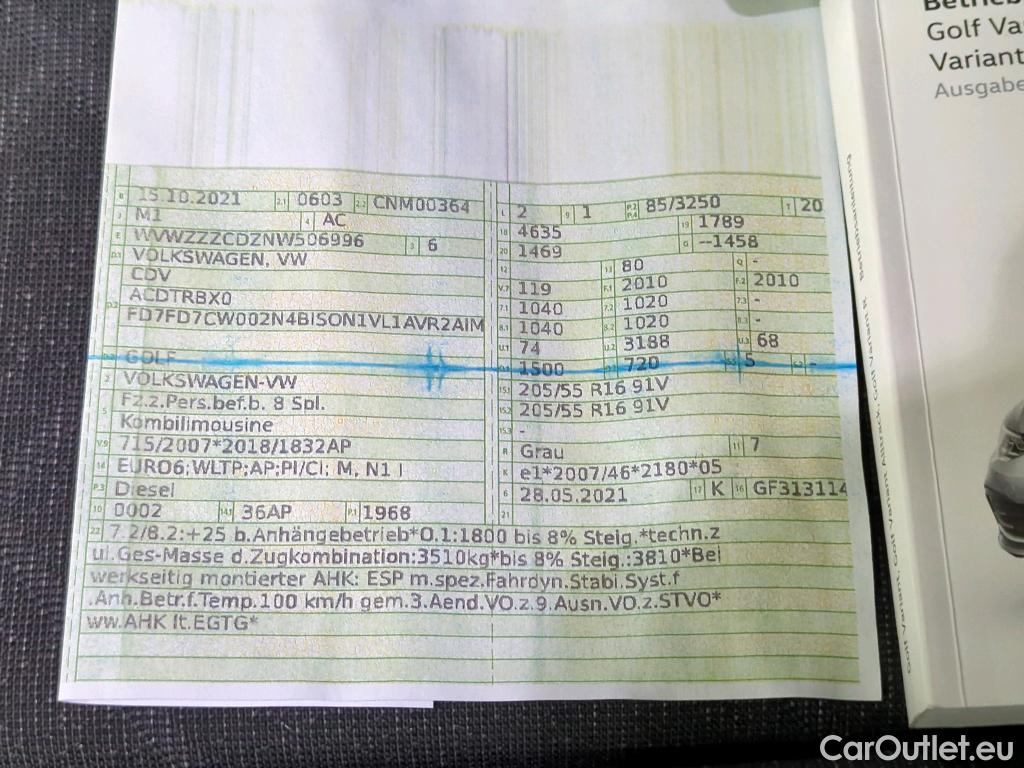 B 15.10.2021 2.1 0603 2.2 CNM00364
J M1 4 AC
E WVWZZZCDZNW506996 3 6
D.1 VOLKSWAGEN, VW
CDV
D.2 ACDTRBX0
FD7FD7CW002N4BISON1VL1AVR2AIM
D.3 GOLF
2 VOLKSWAGEN-VW
5 Fz.z.Pers.bef.b. 8 Spl.
Kombilimousine
V.9 715/2007*2018/1832AP
14 EURO6;WLTP;AP;PI/CI; M, N1 I
P.3 Diesel
10 0002 14.1 36AP P.1 1968
L 2 9 1 P.2 P.4 85/3250 T 20
18 4635 19 1789
20 1469 G --1458
12 13 80 Q -
V.7 119 F.1 2010 F.2 2010
7.1 1040 7.2 1020 7.3 -
8.1 1040 8.2 1020 8.3 -
U.1 74 U.2 3188 U.3 68
O.1 1500 O.2 720 S.1 5 S.2 -
15.1 205/55 R16 91V
15.2 205/55 R16 91V
15.3 -
R Grau 11 7
K e1*2007/46*2180*05
6 28.05.2021 17 K 16 GF313114
21
22 7.2/8.2:+25 b.Anhängebetrieb*O.1:1800 bis 8% Steig.*techn.z
ul.Ges-Masse d.Zugkombination:3510kg*bis 8% Steig.:3810*Bei
werkseitig montierter AHK: ESP m.spez.Fahrdyn.Stabi.Syst.f
.Anh.Betr.f.Temp.100 km/h gem.3.Aend.VO.z.9.Ausn.VO.z.STVO*
ww.AHK lt.EGTG*
Golf Va
Variant
Ausgabe
CarOutlet.eu